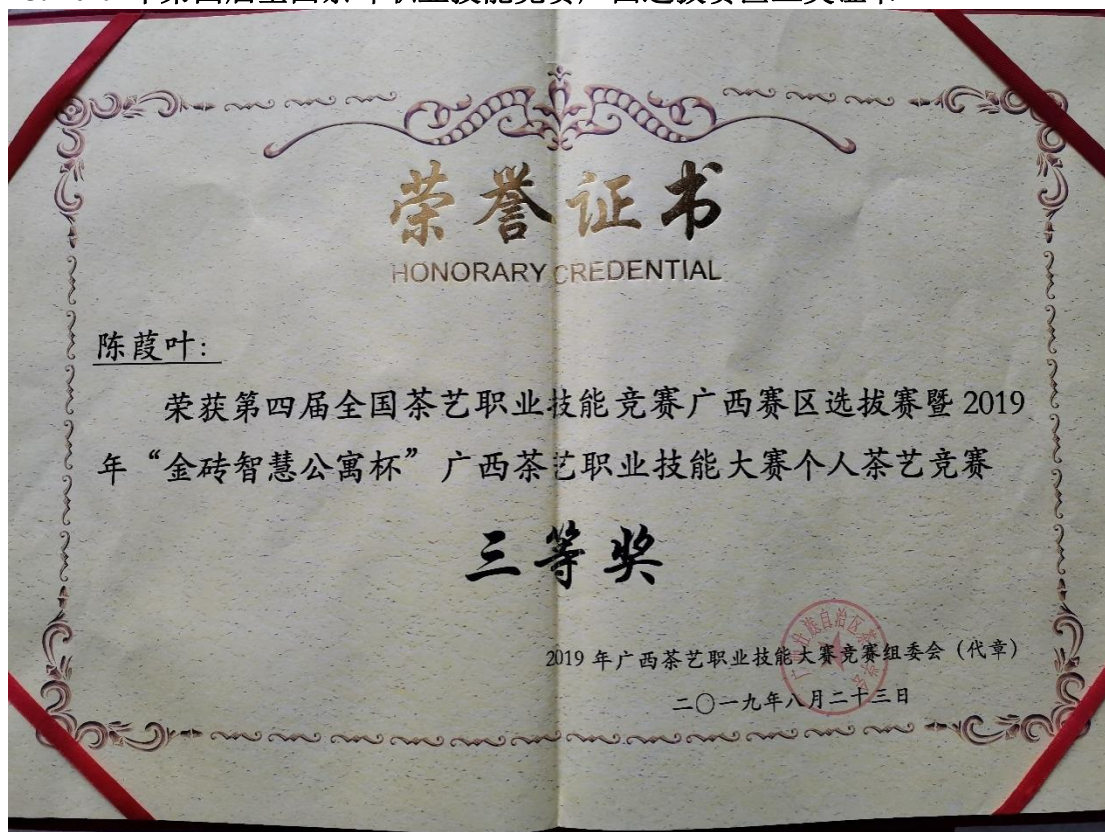 荣誉证书
HONORARY CREDENTIAL
陈葭叶：
荣获第四届全国茶艺职业技能竞赛广西赛区选拔赛暨 2019
年“金砖智慧公寓杯”广西茶艺职业技能大赛个人茶艺竞赛
三等奖
2019 年广西茶艺职业技能大赛竞赛组委会（代章）
二〇一九年八月二十三日